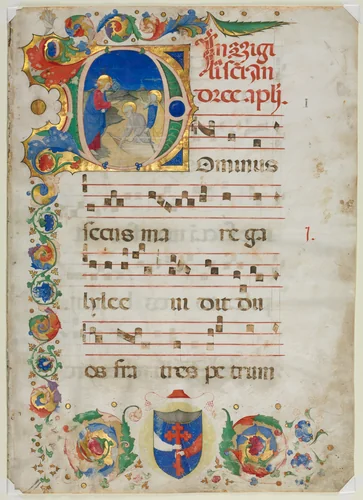 In uigi
li scti An
dree apli.
Dominus
secus ma re ga
lylee ui dit du
os fra tres pe trum